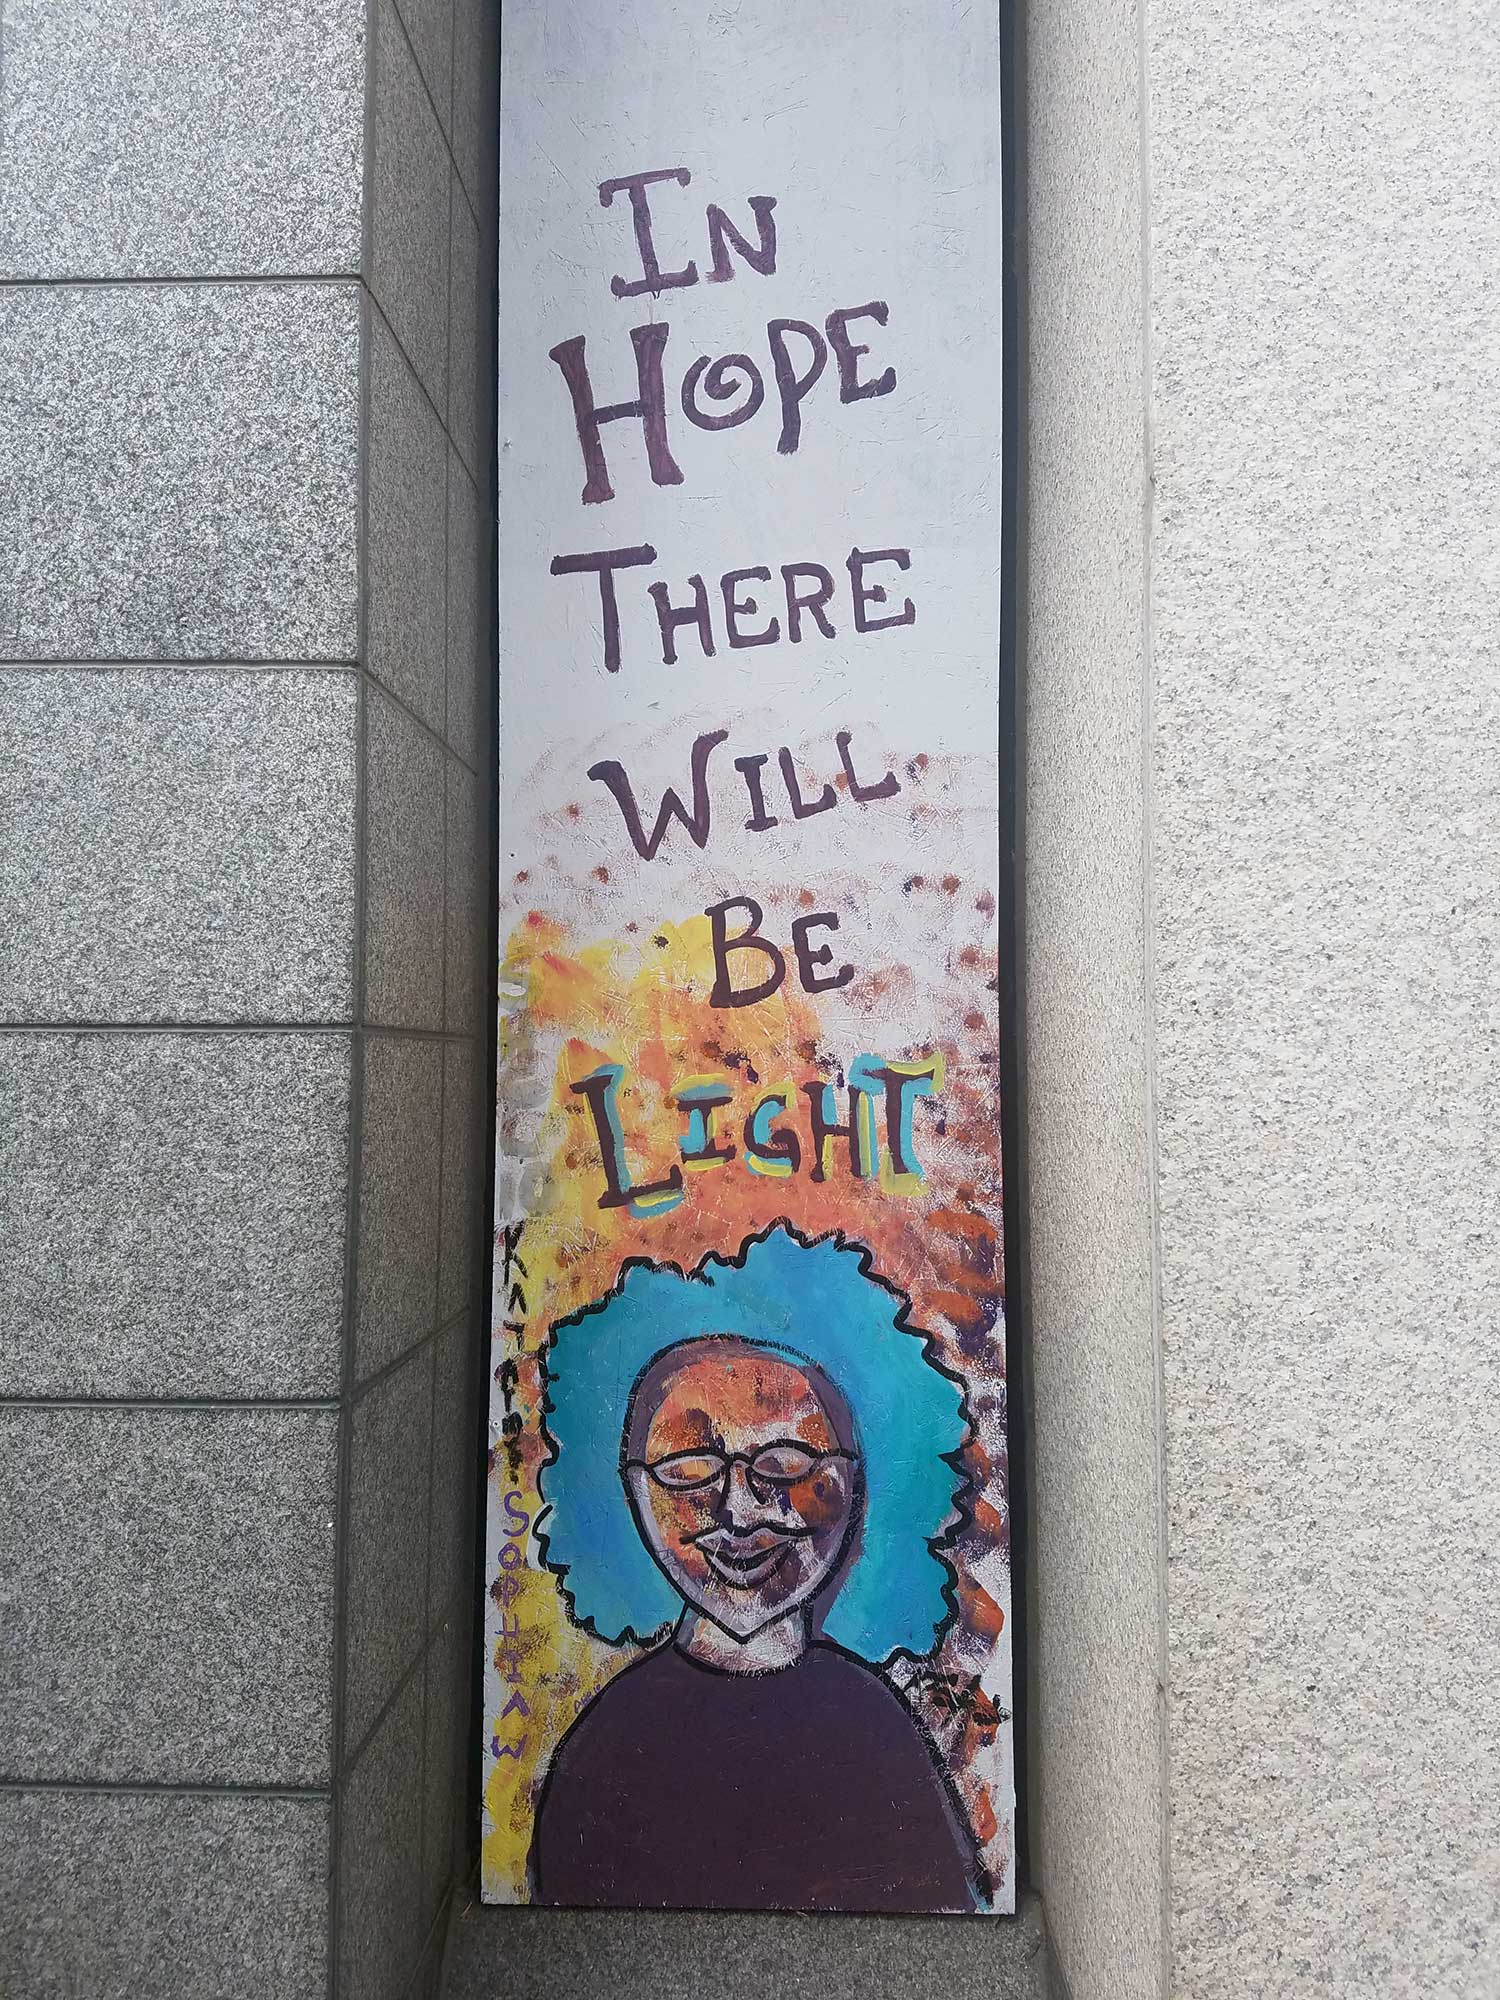 IN
HOPE
THERE
WILL
BE
LIGHT
SOPHIA W